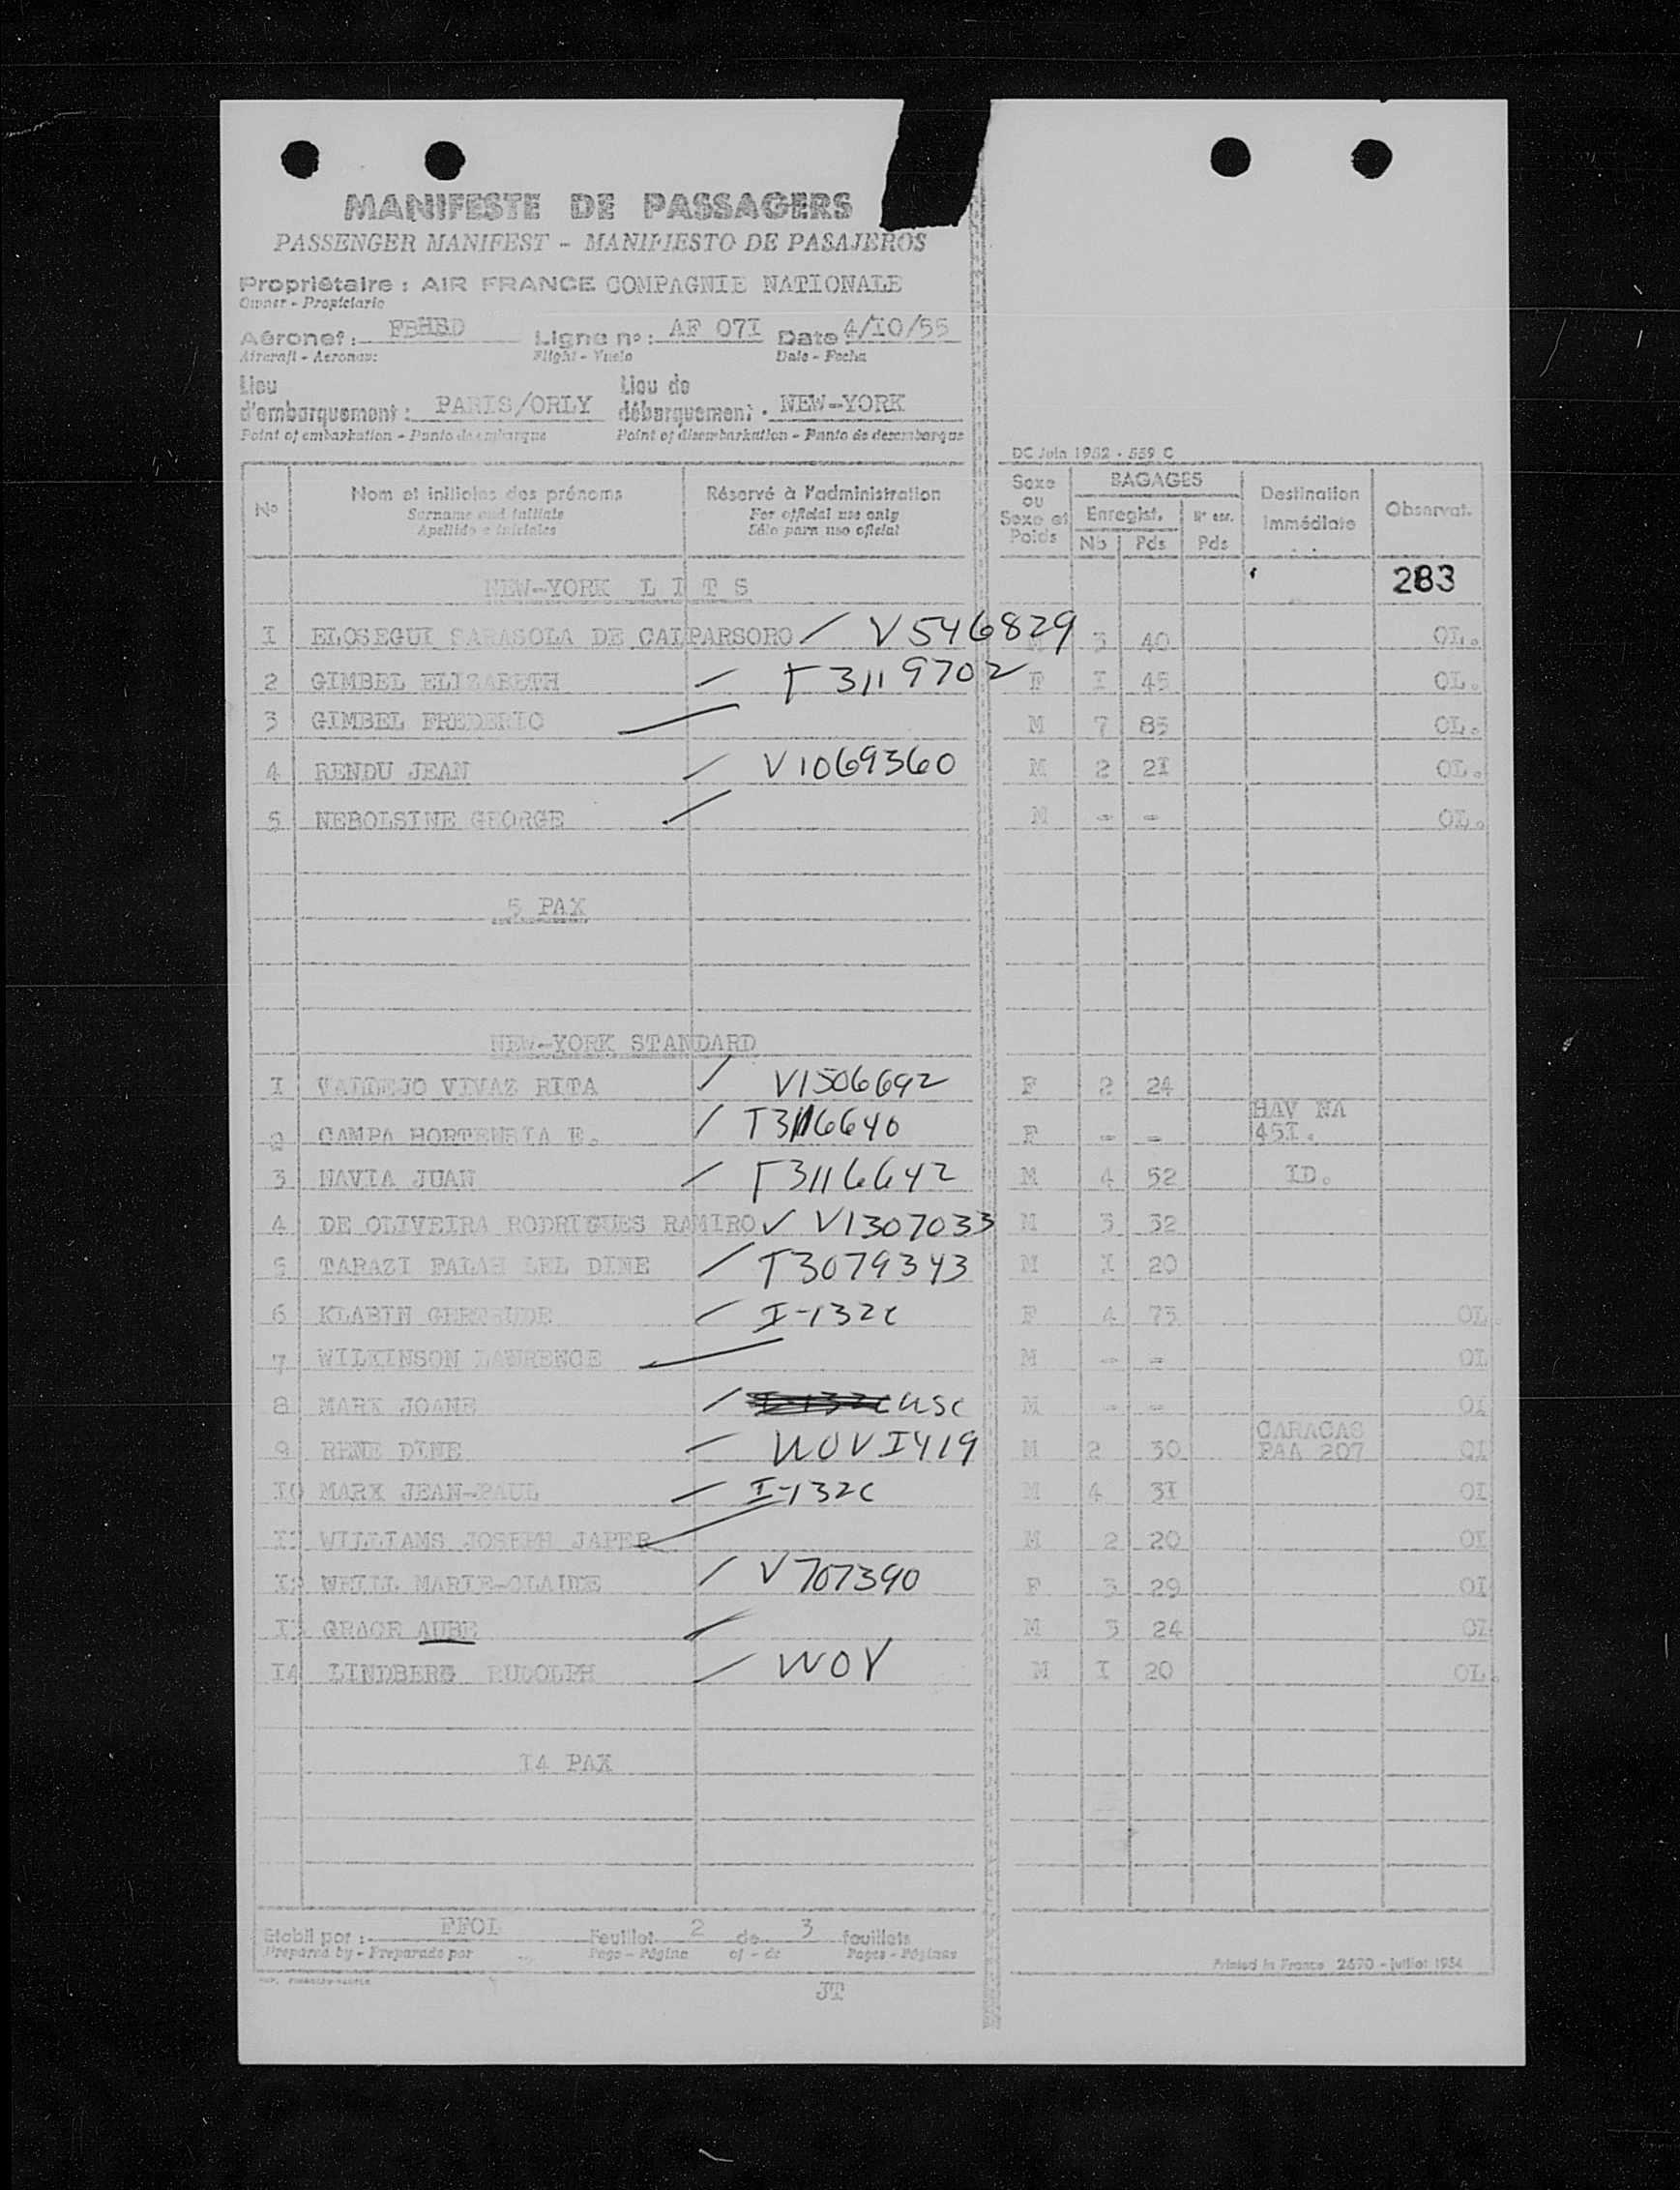 MANIFESTE DE PASSAGERS
PASSENGER MANIFEST - MANIFIESTO DE PASAJEROS
Propriétaire : AIR FRANCE COMPAGNIE NATIONALE
Owner - Propietario
Aéronef : FBHBD Ligne no : AF 07I Date 4/I0/55
Aircraft - Aeronave Flight - Vuelo Date - Fecha
Lieu d'embarquement : PARIS/ORLY Lieu de débarquement . NEW-YORK
Point of embarkation - Punto de embarque Point of disembarkation - Punto de desembarque
DC Juin 1952 - 559 C
No Nom et initiales des prénoms Réservé à l'administration Sexe ou Sexe et Poids BAGAGES Destination Immédiate Observat.
Surname and initials For official use only Enregist. Nr enr.
Apellido e iniciales Sólo para uso oficial Nb Pds Pds
NEW-YORK L I T S 283
I ELOSEGUI SARASOLA DE CALPARSORO V546829 M 3 40 OL.
2 GIMBEL ELIZABETH T3119702 F I 45 OL.
3 GIMBEL FREDERIC M 7 85 OL.
4 RENDU JEAN V1069360 M 2 2I OL.
5 NEBOLSINE GEORGE M - - OL.
5 PAX
NEW-YORK STANDARD
I VALLEJO VIVAZ RITA V1506692 F 2 24
2 CAMPA HORTENSIA E. T3116640 F - - HAV NA 45I.
3 NAVIA JUAN T3116642 M 4 52 ID.
4 DE OLIVEIRA RODRIGUES RAMIRO V1307033 M 3 32
5 TARAZI FALAH LEL DINE T3079343 M I 20
6 KLABIN GERTRUDE I-132c F 4 73 OL.
7 WILKINSON LAWRENCE M - - OL
8 MARK JOANE USC M - - OL
9 RENE DINE WOV I419 M 2 30 CARACAS PAA 207 OL
I0 MARX JEAN-PAUL I-132c M 4 3I OL
II WILLIAMS JOSEPH JAPER M 2 20 OL
I2 WEILL MARIE-CLAIRE V707390 F 3 29 OL
I3 GRACE AUBE M 3 24 OL
I4 LINDBERG RUDOLPH WOV M I 20 OL.
I4 PAX
Etabli par : FFOL Feuillet 2 de 3 feuillets
Prepared by - Preparado por Page - Página of - de Pages - Páginas
Printed in France 2670 - juillet 1954
JT